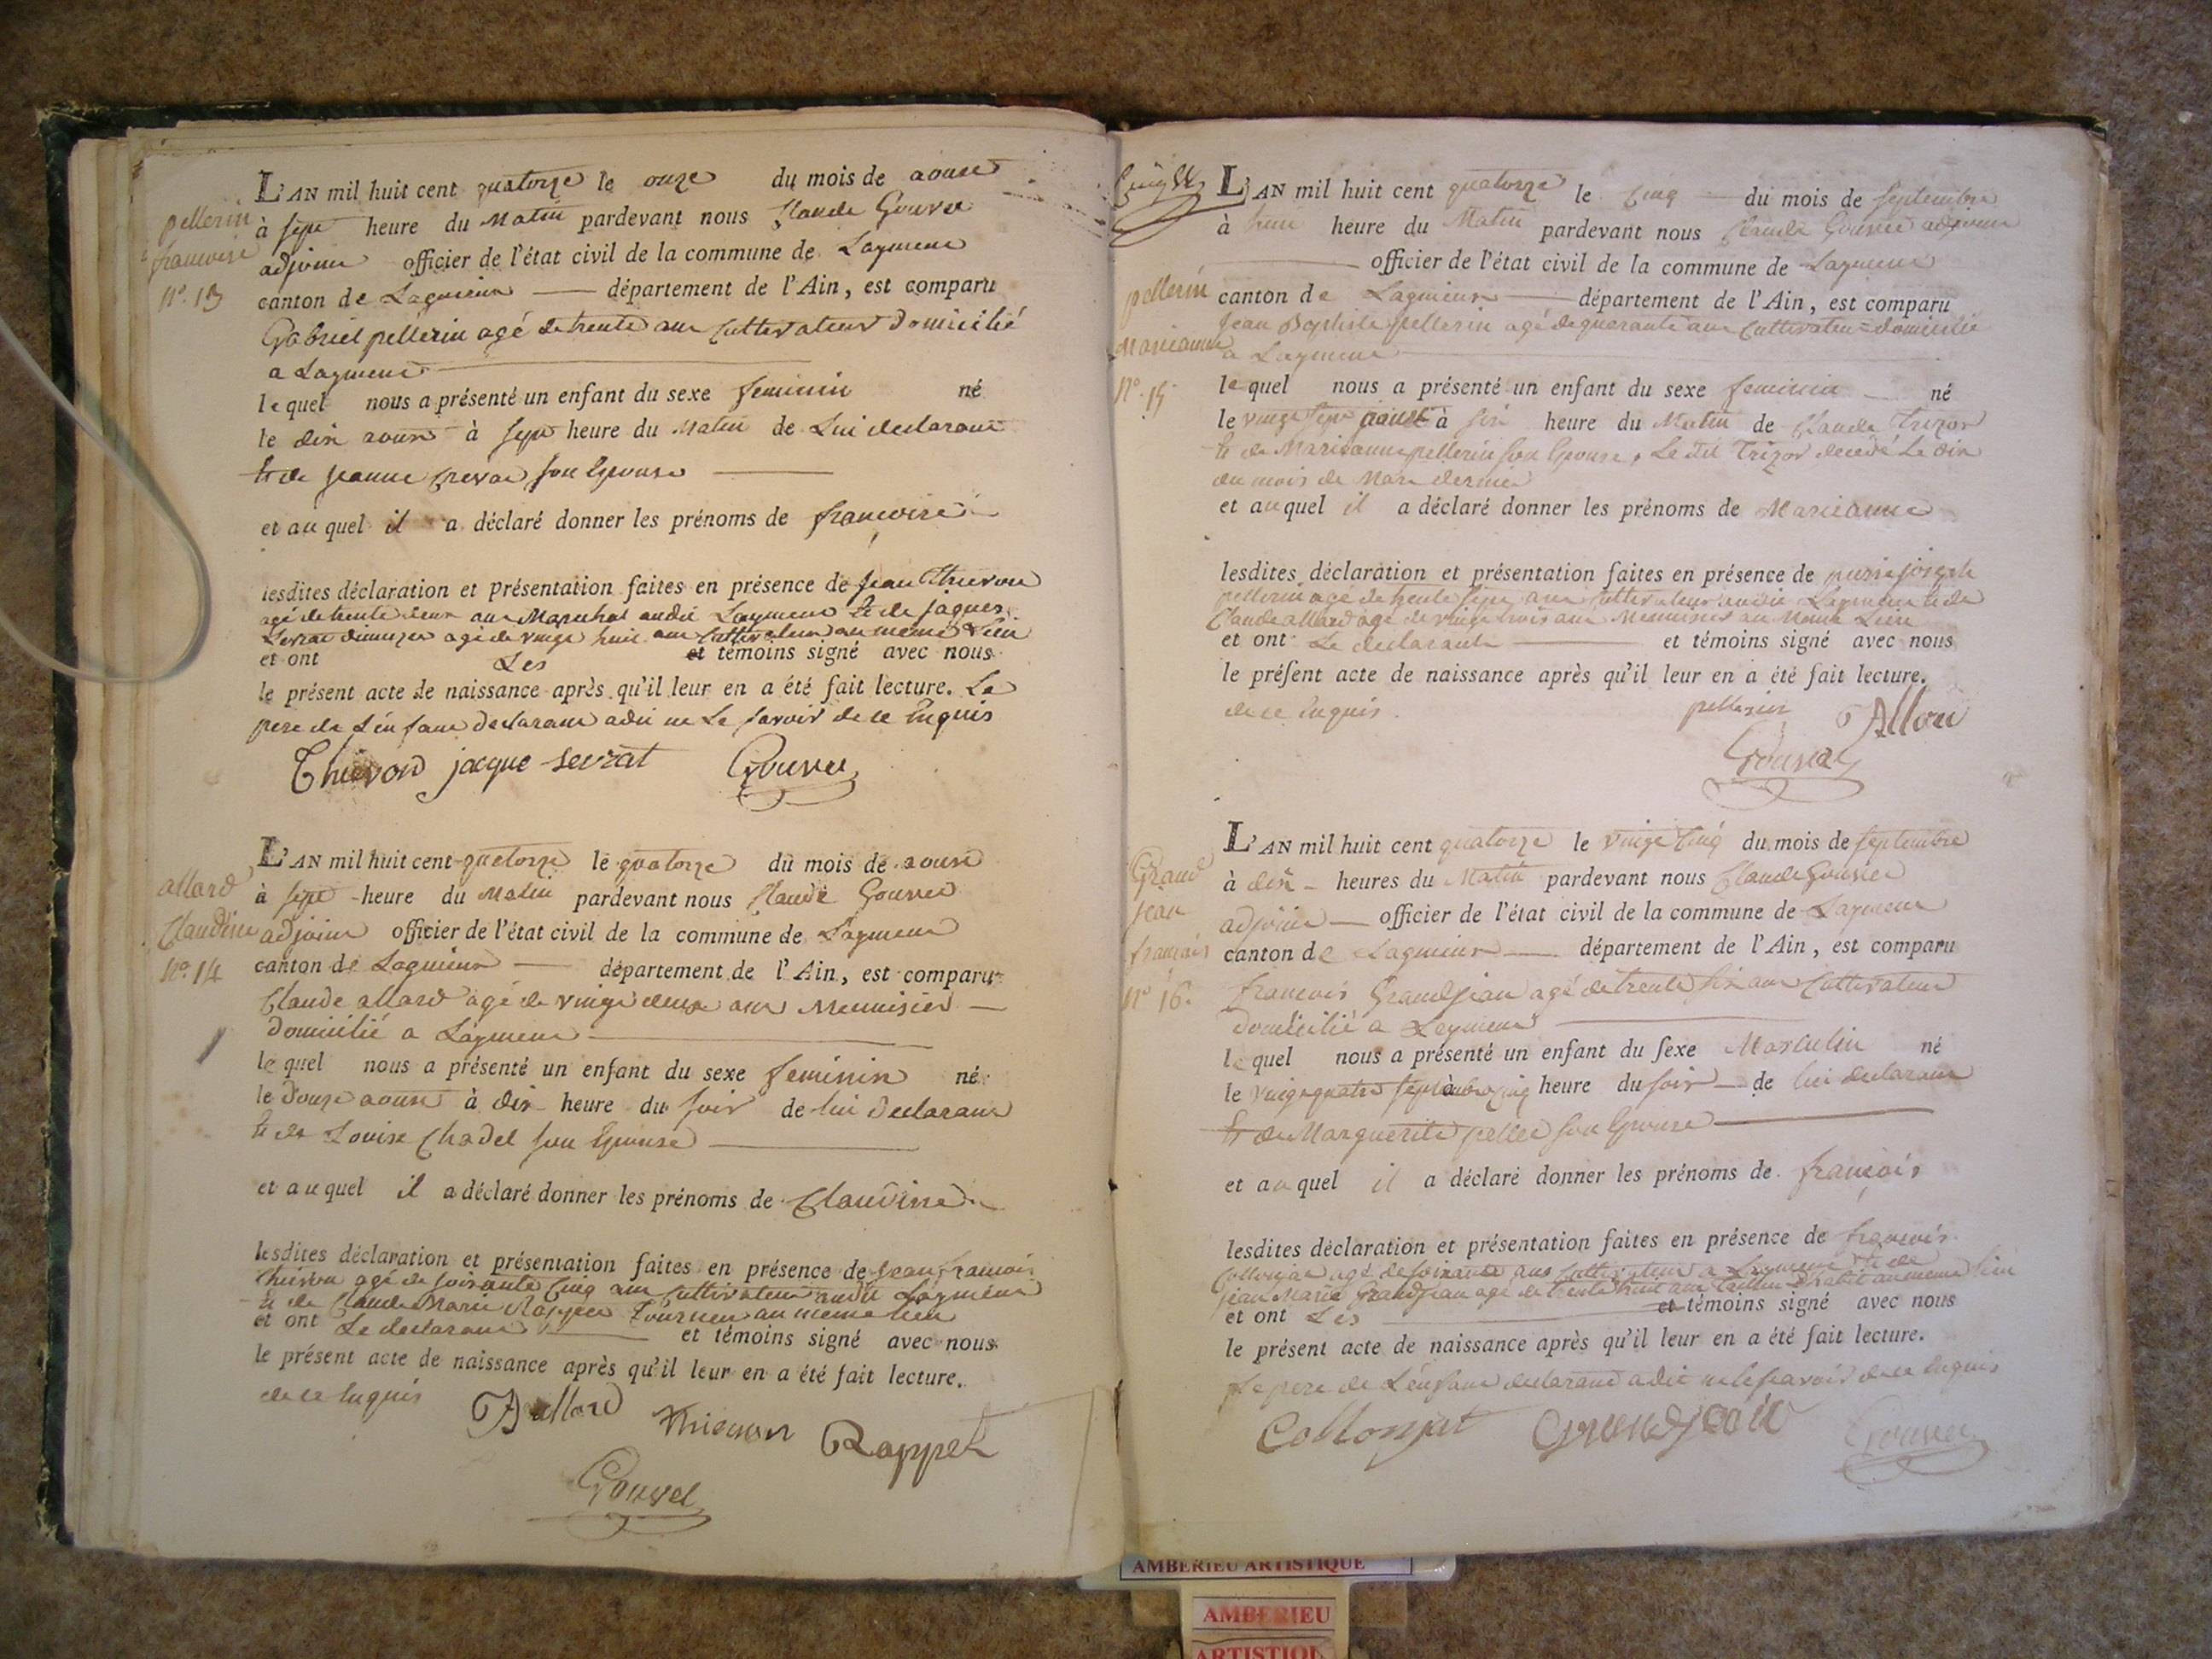 pellerin
francoise
N°. 13
L'AN mil huit cent quatorze le onze du mois de aoust
à sept heure du Matin pardevant nous Claude Gouvet
adjoint officier de l'état civil de la commune de Lagnieu
canton de Lagnieu département de l'Ain, est comparu
Gabriel pellerin agé de trente ans Cultivateur domicilié
a Lagnieu
lequel nous a présenté un enfant du sexe feminin né
le dix aoust à sept heure du Matin de Lui declarant
Et de jeanne son Epouse
et auquel il a déclaré donner les prénoms de francoise
lesdites déclaration et présentation faites en présence de jean Thievon
agé de trente deux ans Marechal audit Lagnieu Et de jaques
agé de vingt huit ans Cultivateur au même Lieu
et ont Les et témoins signé avec nous
le présent acte de naissance après qu'il leur en a été fait lecture. Le
pere de L'enfant declarant a dit ne Le savoir de ce Enquis
Thievon jacque sevrat Gouvet
allard
Claudine
N°. 14
L'AN mil huit cent quatorze le quatorze du mois de aoust
à sept heure du Matin pardevant nous Claude Gouvet
adjoint officier de l'état civil de la commune de Lagnieu
canton de Lagnieu département de l'Ain, est comparu
Claude allard agé de vingt deux ans Menuisier
domicilié a Lagnieu
lequel nous a présenté un enfant du sexe feminin né
le douze aoust à dix heure du soir de lui declarant
Et de Louise Chadel son Epouse
et auquel il a déclaré donner les prénoms de Claudine
lesdites déclaration et présentation faites en présence de jean francois
thievon agé de soixante Cinq ans Cultivateur audit Lagnieu
Et de Claude Marie Rappet Tourneur au meme lieu
et ont Le declarant et témoins signé avec nous
le présent acte de naissance après qu'il leur en a été fait lecture.
de ce Enquis
Allard thievon Rappet
Gouvet
pellerin
Marieanne
N°. 15
L'AN mil huit cent quatorze le Cinq du mois de septembre
à heure du Matin pardevant nous Claude Gouvet adjoint
officier de l'état civil de la commune de Lagnieu
canton de Lagnieu département de l'Ain, est comparu
Jean Baptiste pellerin agé de quarante ans Cultivateur domicilié
a Lagnieu
lequel nous a présenté un enfant du sexe feminin né
le vingt sept aoust à six heure du Matin de Claude Trizor
Et de Marieanne pellerin son Epouse, Le dit Trizor decedé Le dix
du mois de Mars dernier
et auquel il a déclaré donner les prénoms de Marieanne
lesdites déclaration et présentation faites en présence de pierre joseph
pellerin agé de trente sept ans Cultivateur audit Lagnieu Et de
Claude allard agé de vingt trois ans Menuisier au Meme Lieu
et ont Le declarant et témoins signé avec nous
le présent acte de naissance après qu'il leur en a été fait lecture.
de ce Enquis. pellerin Allard
Gouvet
Grand
jean
francois
N° 16.
L'AN mil huit cent quatorze le vingt Cinq du mois de septembre
à dix heures du Matin pardevant nous Claude Gouvet
adjoint officier de l'état civil de la commune de Lagnieu
canton de Lagnieu département de l'Ain, est comparu
francois Grandjean agé de trente six ans Cultivateur
domicilié a Lagnieu
lequel nous a présenté un enfant du sexe Masculin né
le vingt quatre septembre à Cinq heure du soir de lui declarant
Et de Marguerite pellet son Epouse
et auquel il a déclaré donner les prénoms de francois
lesdites déclaration et présentation faites en présence de francois
Collonjat agé de soixante ans Cultivateur a Lagnieu Et de
jean Marie Grandjean agé de trente huit ans Tailleur d'habit au meme lieu
et ont Les et témoins signé avec nous
le présent acte de naissance après qu'il leur en a été fait lecture.
Le pere de L'enfant declarant a dit ne le savoir de ce Enquis
Collonjat Grandjean Gouvet
AMBERIEU ARTISTIQUE
AMBERIEU